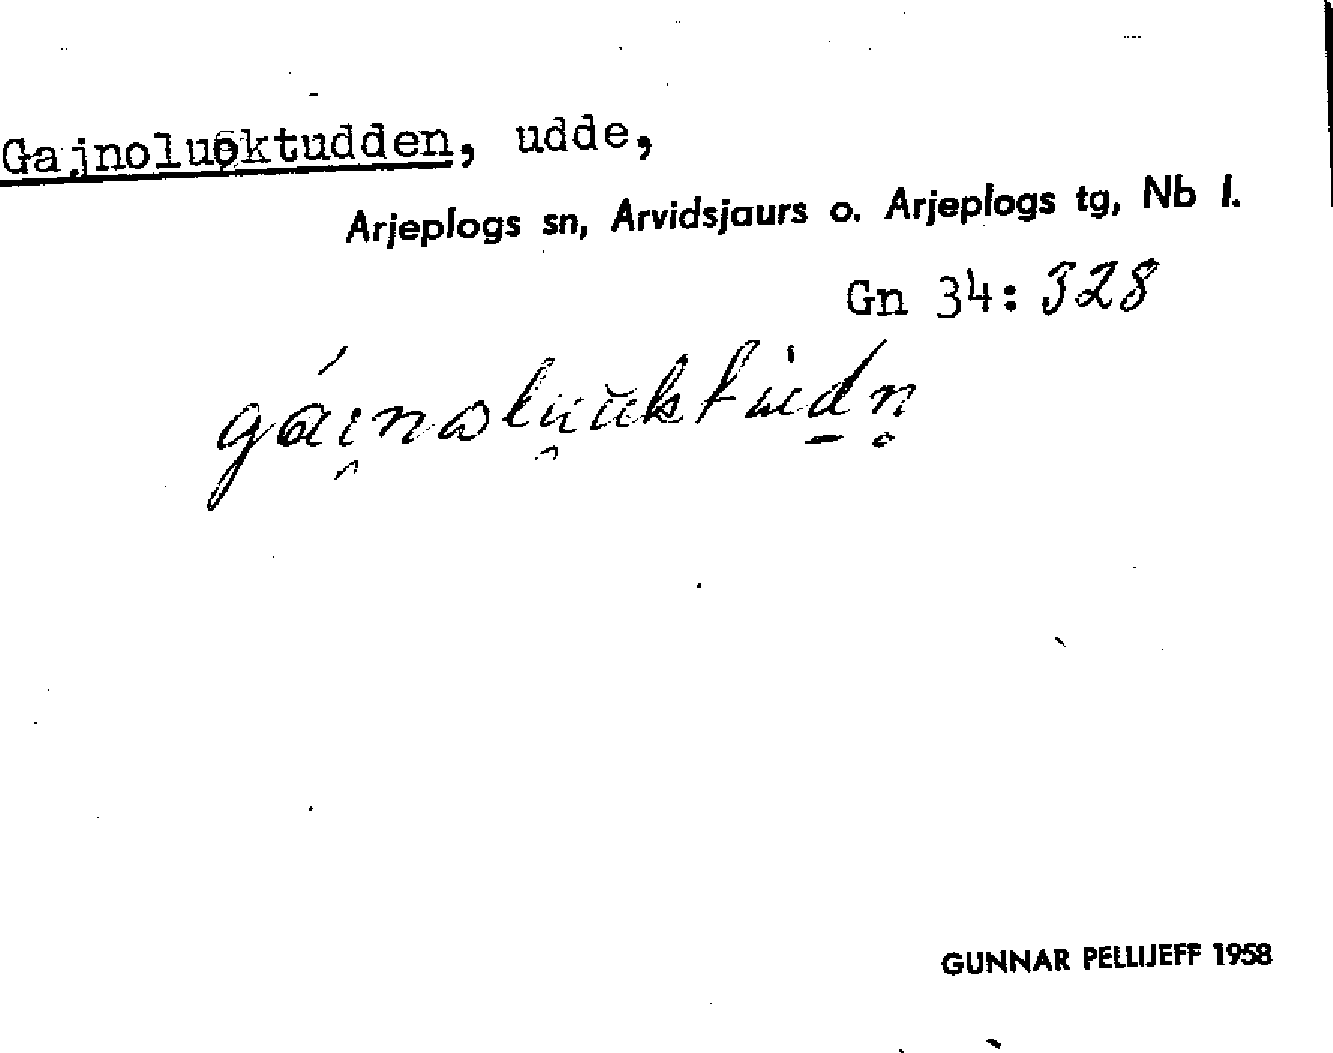 Gajnoluoktudden, udde,
Arjeplogs sn, Arvidsjaurs o. Arjeplogs tg, Nb l.
Gn 34: 328
GUNNAR PELLIJEFF 1958